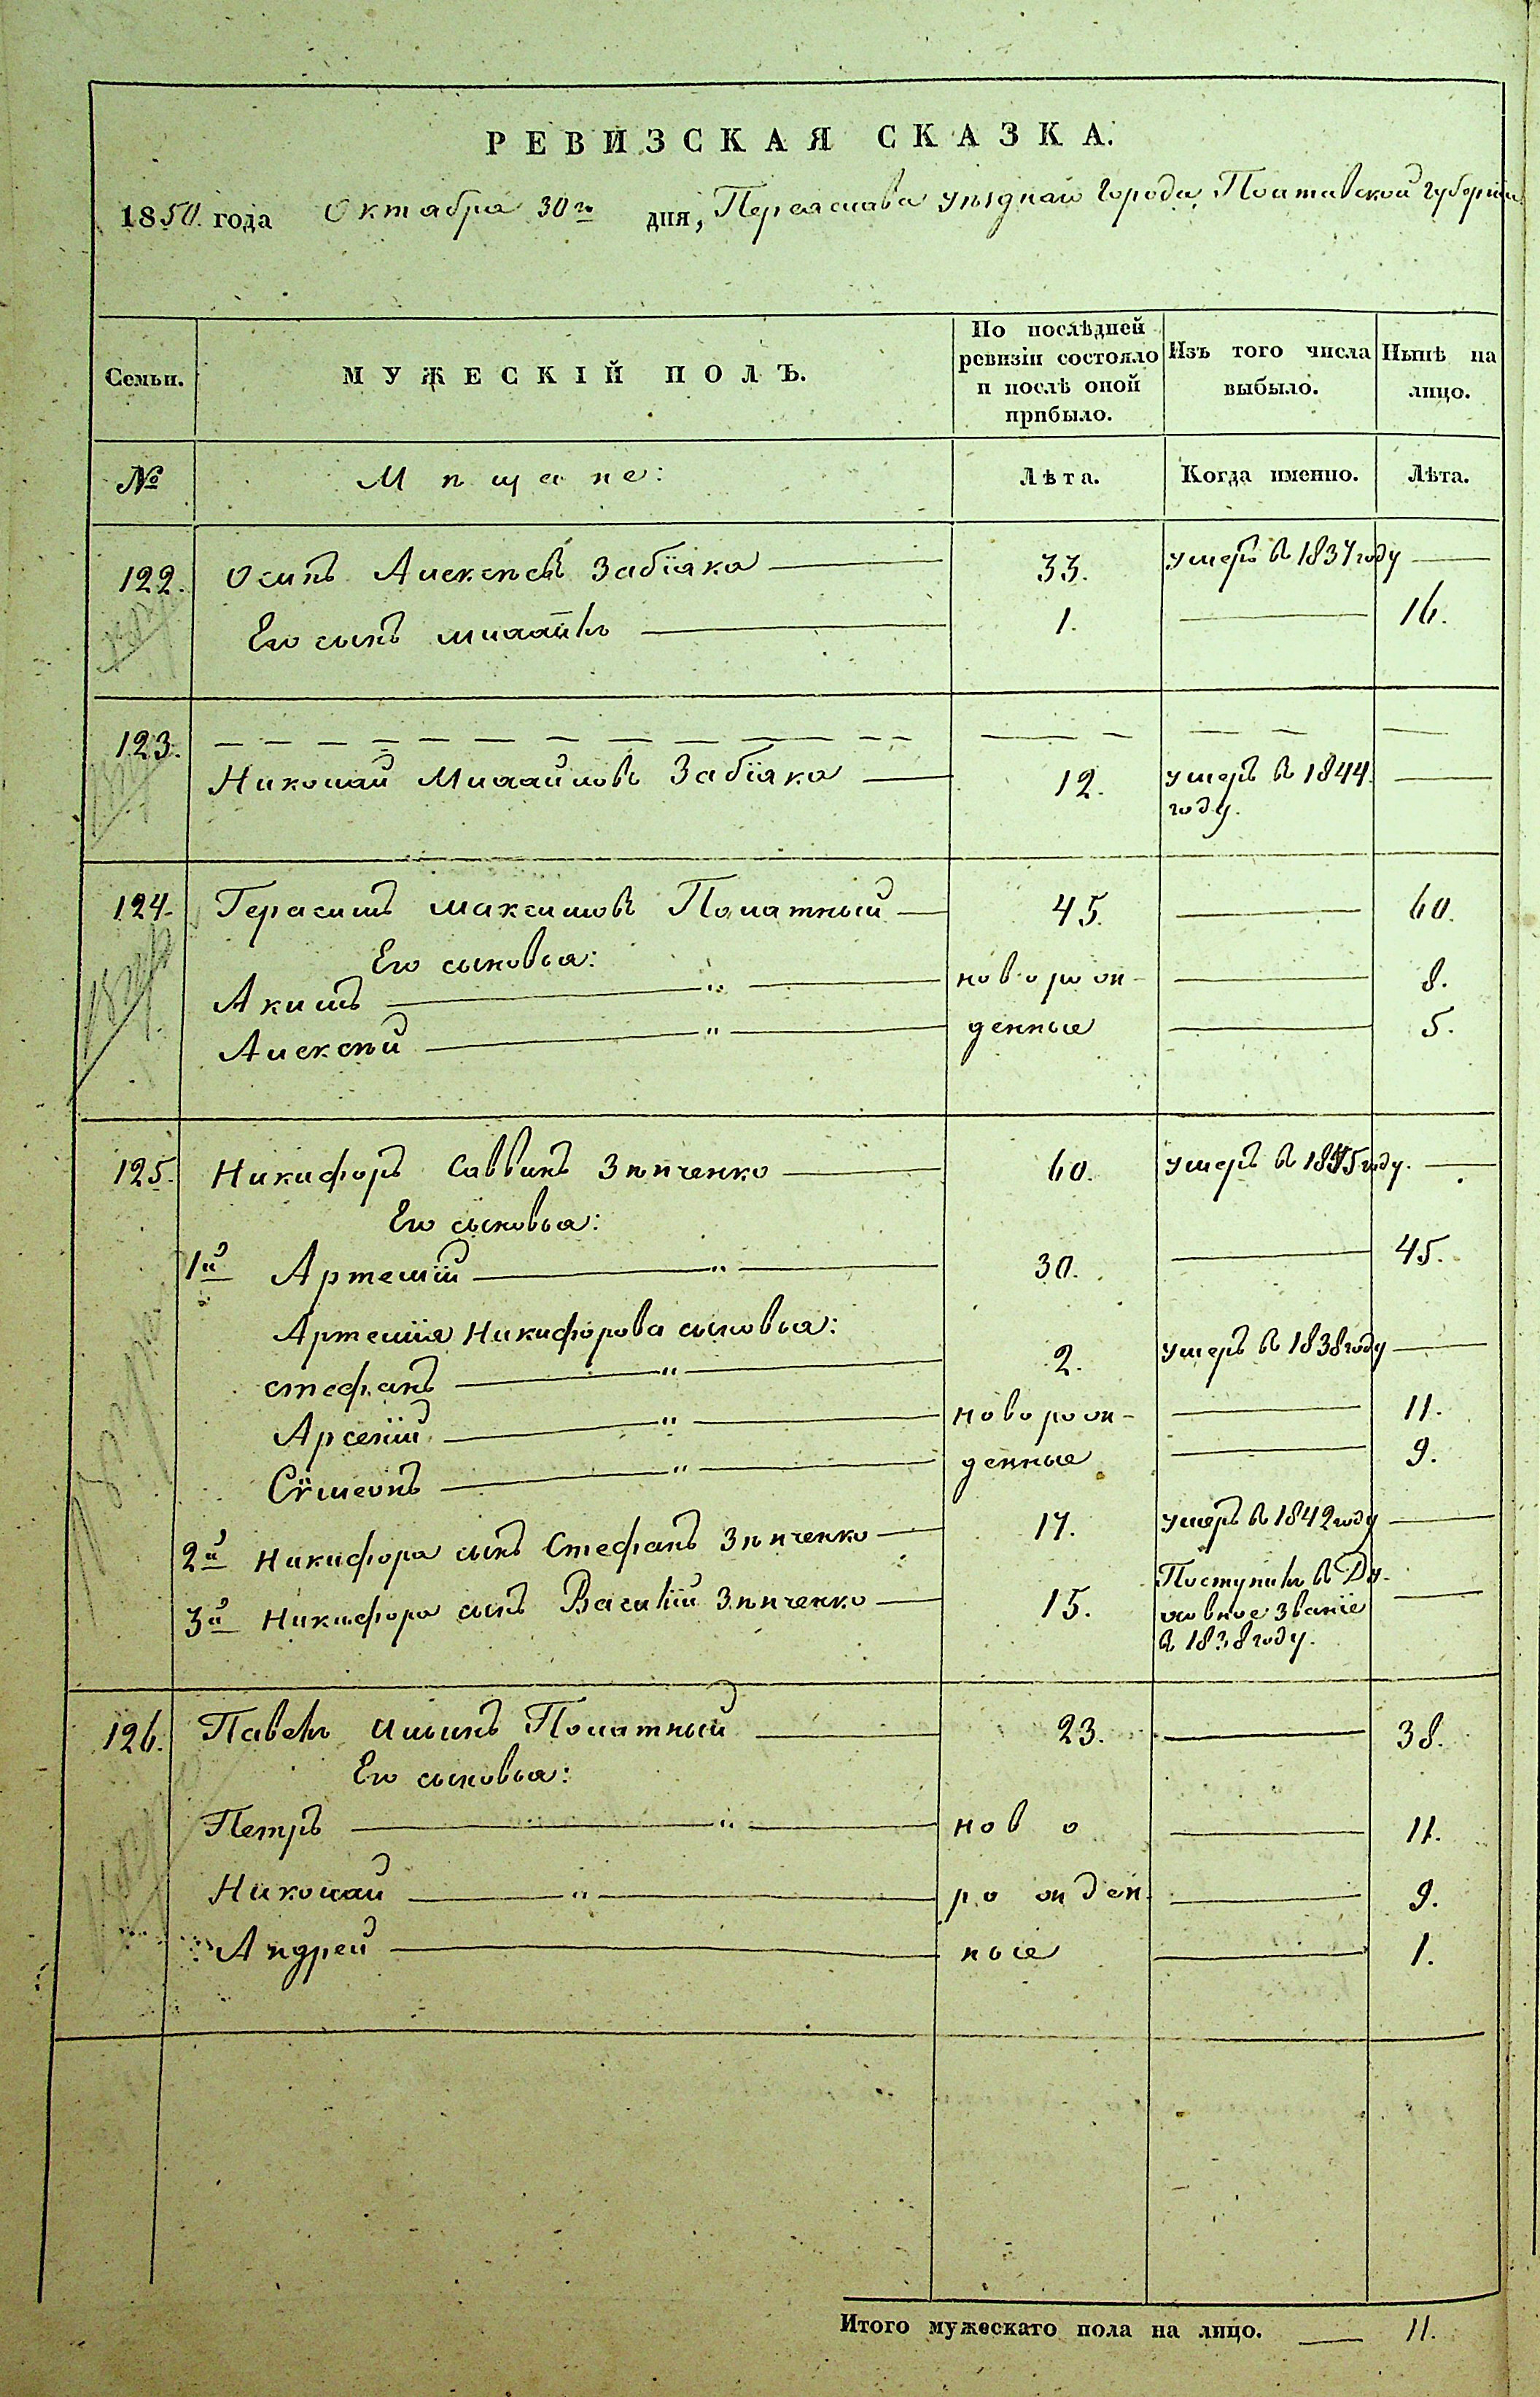 РЕВИЗСКАЯ СКАЗКА.
1850. года Октября 30го дня, Переяслава уѣзднаго города, Полтавской губерніи
Семьи.
МУЖЕСКІЙ ПОЛЪ.
По послѣдней ревизіи состояло и послѣ оной прибыло.
Изъ того числа выбыло.
Нынѣ на лицо.
№ Мѣщане: Лѣта. Когда именно. Лѣта.
122. Осипъ Алексѣевъ Забіяка 33. умеръ въ 1837 году
Его сынъ Михайлъ 1. 16.
123.
Николай Михайловъ Забіяка 12. умеръ въ 1844.
году.
124. Герасимъ Максимовъ Полатный 45. 60.
Его сыновья:
Акимъ " новорож- 8.
Алексѣй " денные 5.
125. Никифоръ Саввинъ Зѣнченко 60. умеръ въ 1845 году.
Его сыновья:
1й Артемій " 30. 45.
Артемія Никифорова сыновья:
Стефанъ " 2. умеръ въ 1838 году
Арсеній " новорож- 11.
Сѵмеонъ " денные 9.
2й Никифора сынъ Стефанъ Зѣнченко 17. умеръ въ 1842 году
3й Никифора сынъ Василій Зѣнченко 15. Поступилъ въ Ду-
ховное званіе
въ 1838 году.
126. Павелъ Ильинъ Полатный 23. 38.
Его сыновья:
Петръ " ново 11.
Николай " рожден- 9.
Андрей ные 1.
Итого мужескаго пола на лицо. 11.